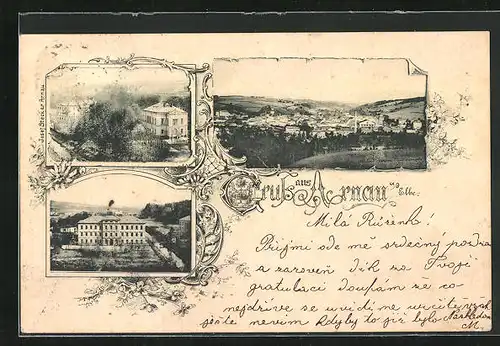 Gruss aus Arnau a/Elbe.
Milá Růženk!
Přijmi ode mě srdečný pozdra
a zároveň dík za Tvoji
gratulaci doufám že co
nejdříve se uvidíme určitě
ještě nevím kdyby to již bylo
M.